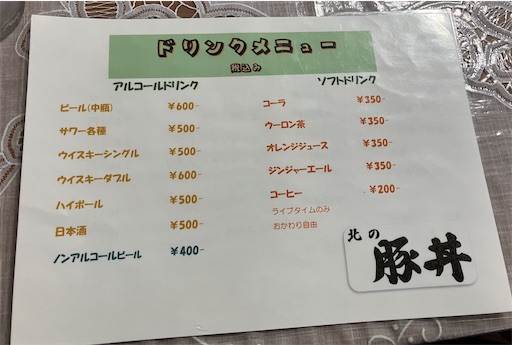 ドリンクメニュー
税込み
アルコールドリンク
ビール(中瓶) ¥600-
サワー各種 ¥500-
ウイスキーシングル ¥500-
ウイスキーダブル ¥600-
ハイボール ¥500-
日本酒 ¥500-
ノンアルコールビール ¥400-
ソフトドリンク
コーラ ¥350-
ウーロン茶 ¥350-
オレンジジュース ¥350-
ジンジャーエール ¥350-
コーヒー ¥200-
ライブタイムのみ
おかわり自由
北の
豚丼